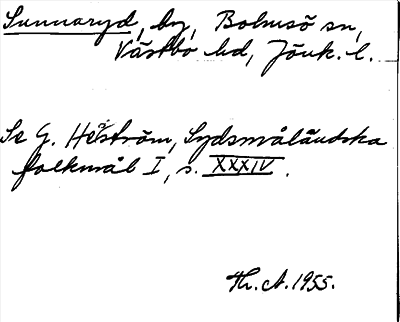 Sunnaryd, by, Bolmsö sn,
Västbo hd, Jönk. l.
Se G. Hedström, Sydsmåländska
folkmål I, s. XXXIV.
Th. A. 1955.